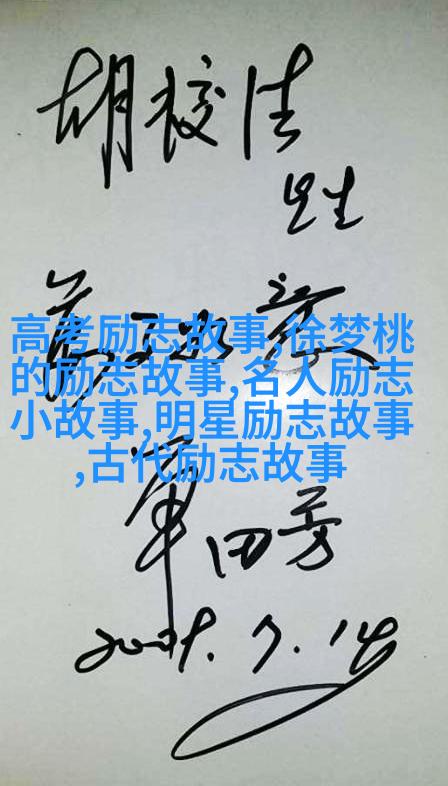 胡校
先生
高考励志故事,徐梦桃
的励志故事,名人励志
小故事,明星励志故事
,古代励志故事
单田芳
7.14